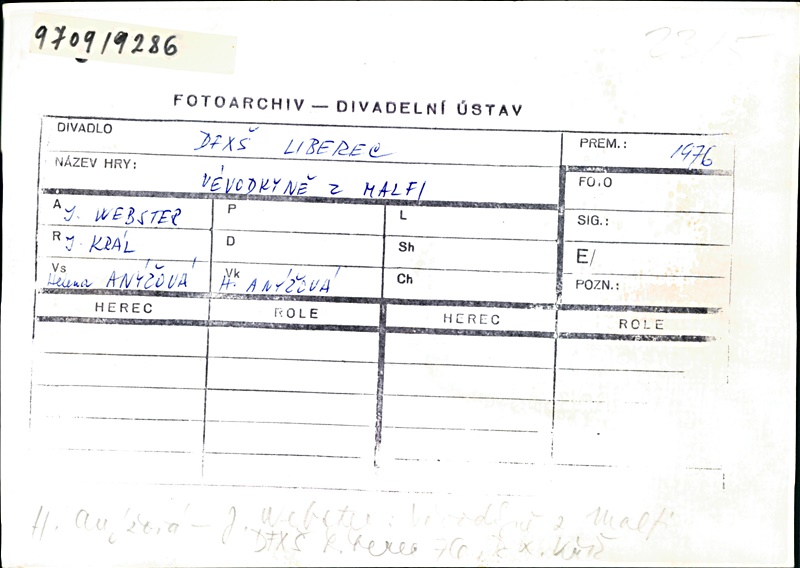 9709/9286
FOTOARCHIV — DIVADELNÍ ÚSTAV
DIVADLO DFXŠ LIBEREC
PREM.: 1976
NÁZEV HRY: VÉVODKYNĚ Z MALFI
FOTO
A J. WEBSTER P L
SIG.:
R J. KRÁL D Sh
E/
Vs Helena ANÝŽOVÁ Vk H. ANÝŽOVÁ Ch
POZN.:
HEREC ROLE HEREC ROLE
H. Anýžová – J. Webster: Vévodkyně z Malfi
DFXŠ